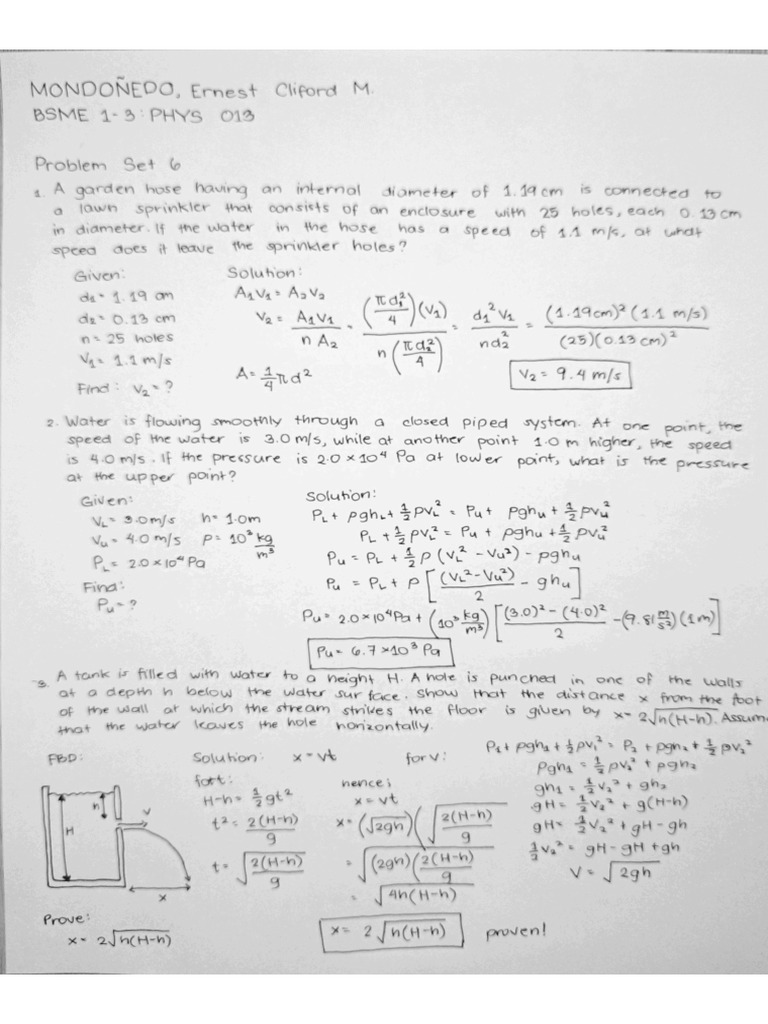 MONDOÑEDO, Ernest Cliford M.
BSME 1-3 : PHYS 013
Problem Set 6
1. A garden hose having an internal diameter of 1.19 cm is connected to
a lawn sprinkler that consists of an enclosure with 25 holes, each 0.13 cm
in diameter. If the water in the hose has a speed of 1.1 m/s, at what
speed does it leave the sprinkler holes?
Given:
d₁ = 1.19 cm
d₂ = 0.13 cm
n = 25 holes
V₁ = 1.1 m/s
Find: V₂ = ?
Solution:
A₁V₁ = A₂V₂
V₂ = A₁V₁ / n A₂ = (πd₁²/4)(V₁) / n(πd₂²/4) = d₁²V₁ / nd₂² = (1.19cm)²(1.1 m/s) / (25)(0.13 cm)²
A = 1/4 πd²
V₂ = 9.4 m/s
2. Water is flowing smoothly through a closed piped system. At one point, the
speed of the water is 3.0 m/s, while at another point 1.0 m higher, the speed
is 4.0 m/s. If the pressure is 2.0 × 10⁴ Pa at lower point, what is the pressure
at the upper point?
Given:
V_L = 3.0 m/s h = 1.0m
V_u = 4.0 m/s ρ = 10³ kg/m³
P_L = 2.0 × 10⁴ Pa
Find:
P_u = ?
Solution:
P_L + ρgh_L + 1/2 ρV_L² = P_u + ρgh_u + 1/2 ρv_u²
P_L + 1/2 ρV_L² = P_u + ρgh_u + 1/2 ρv_u²
P_u = P_L + 1/2 ρ (V_L² - V_u²) - ρgh_u
P_u = P_L + ρ [(V_L² - V_u²)/2 - gh_u]
P_u = 2.0 × 10⁴ Pa + (10³ kg/m³) [((3.0)² - (4.0)²)/2 - (9.81 m/s²)(1m)]
P_u = 6.7 × 10³ Pa
3. A tank is filled with water to a height H. A hole is punched in one of the walls
at a depth h below the water surface. Show that the distance x from the foot
of the wall at which the stream strikes the floor is given by x = 2√h(H-h). Assum
that the water leaves the hole horizontally.
FBD:
h
H
V
x
Prove:
x = 2√h(H-h)
Solution: x = vt
for t:
H-h = 1/2 gt²
t² = 2(H-h)/g
t = √2(H-h)/g
hence;
x = vt
x = (√2gh)(√2(H-h)/g)
= √(2gh)(2(H-h)/g)
= √4h(H-h)
x = 2√h(H-h) proven!
for v: P₁ + ρgh₁ + 1/2 ρv₁² = P₂ + ρgh₂ + 1/2 ρv₂²
ρgh₁ = 1/2 ρv₂² + ρgh₂
gh₁ = 1/2 v₂² + gh₂
gH = 1/2 v₂² + g(H-h)
gH = 1/2 v₂² + gH - gh
1/2 v₂² = gH - gH + gh
V = √2gh